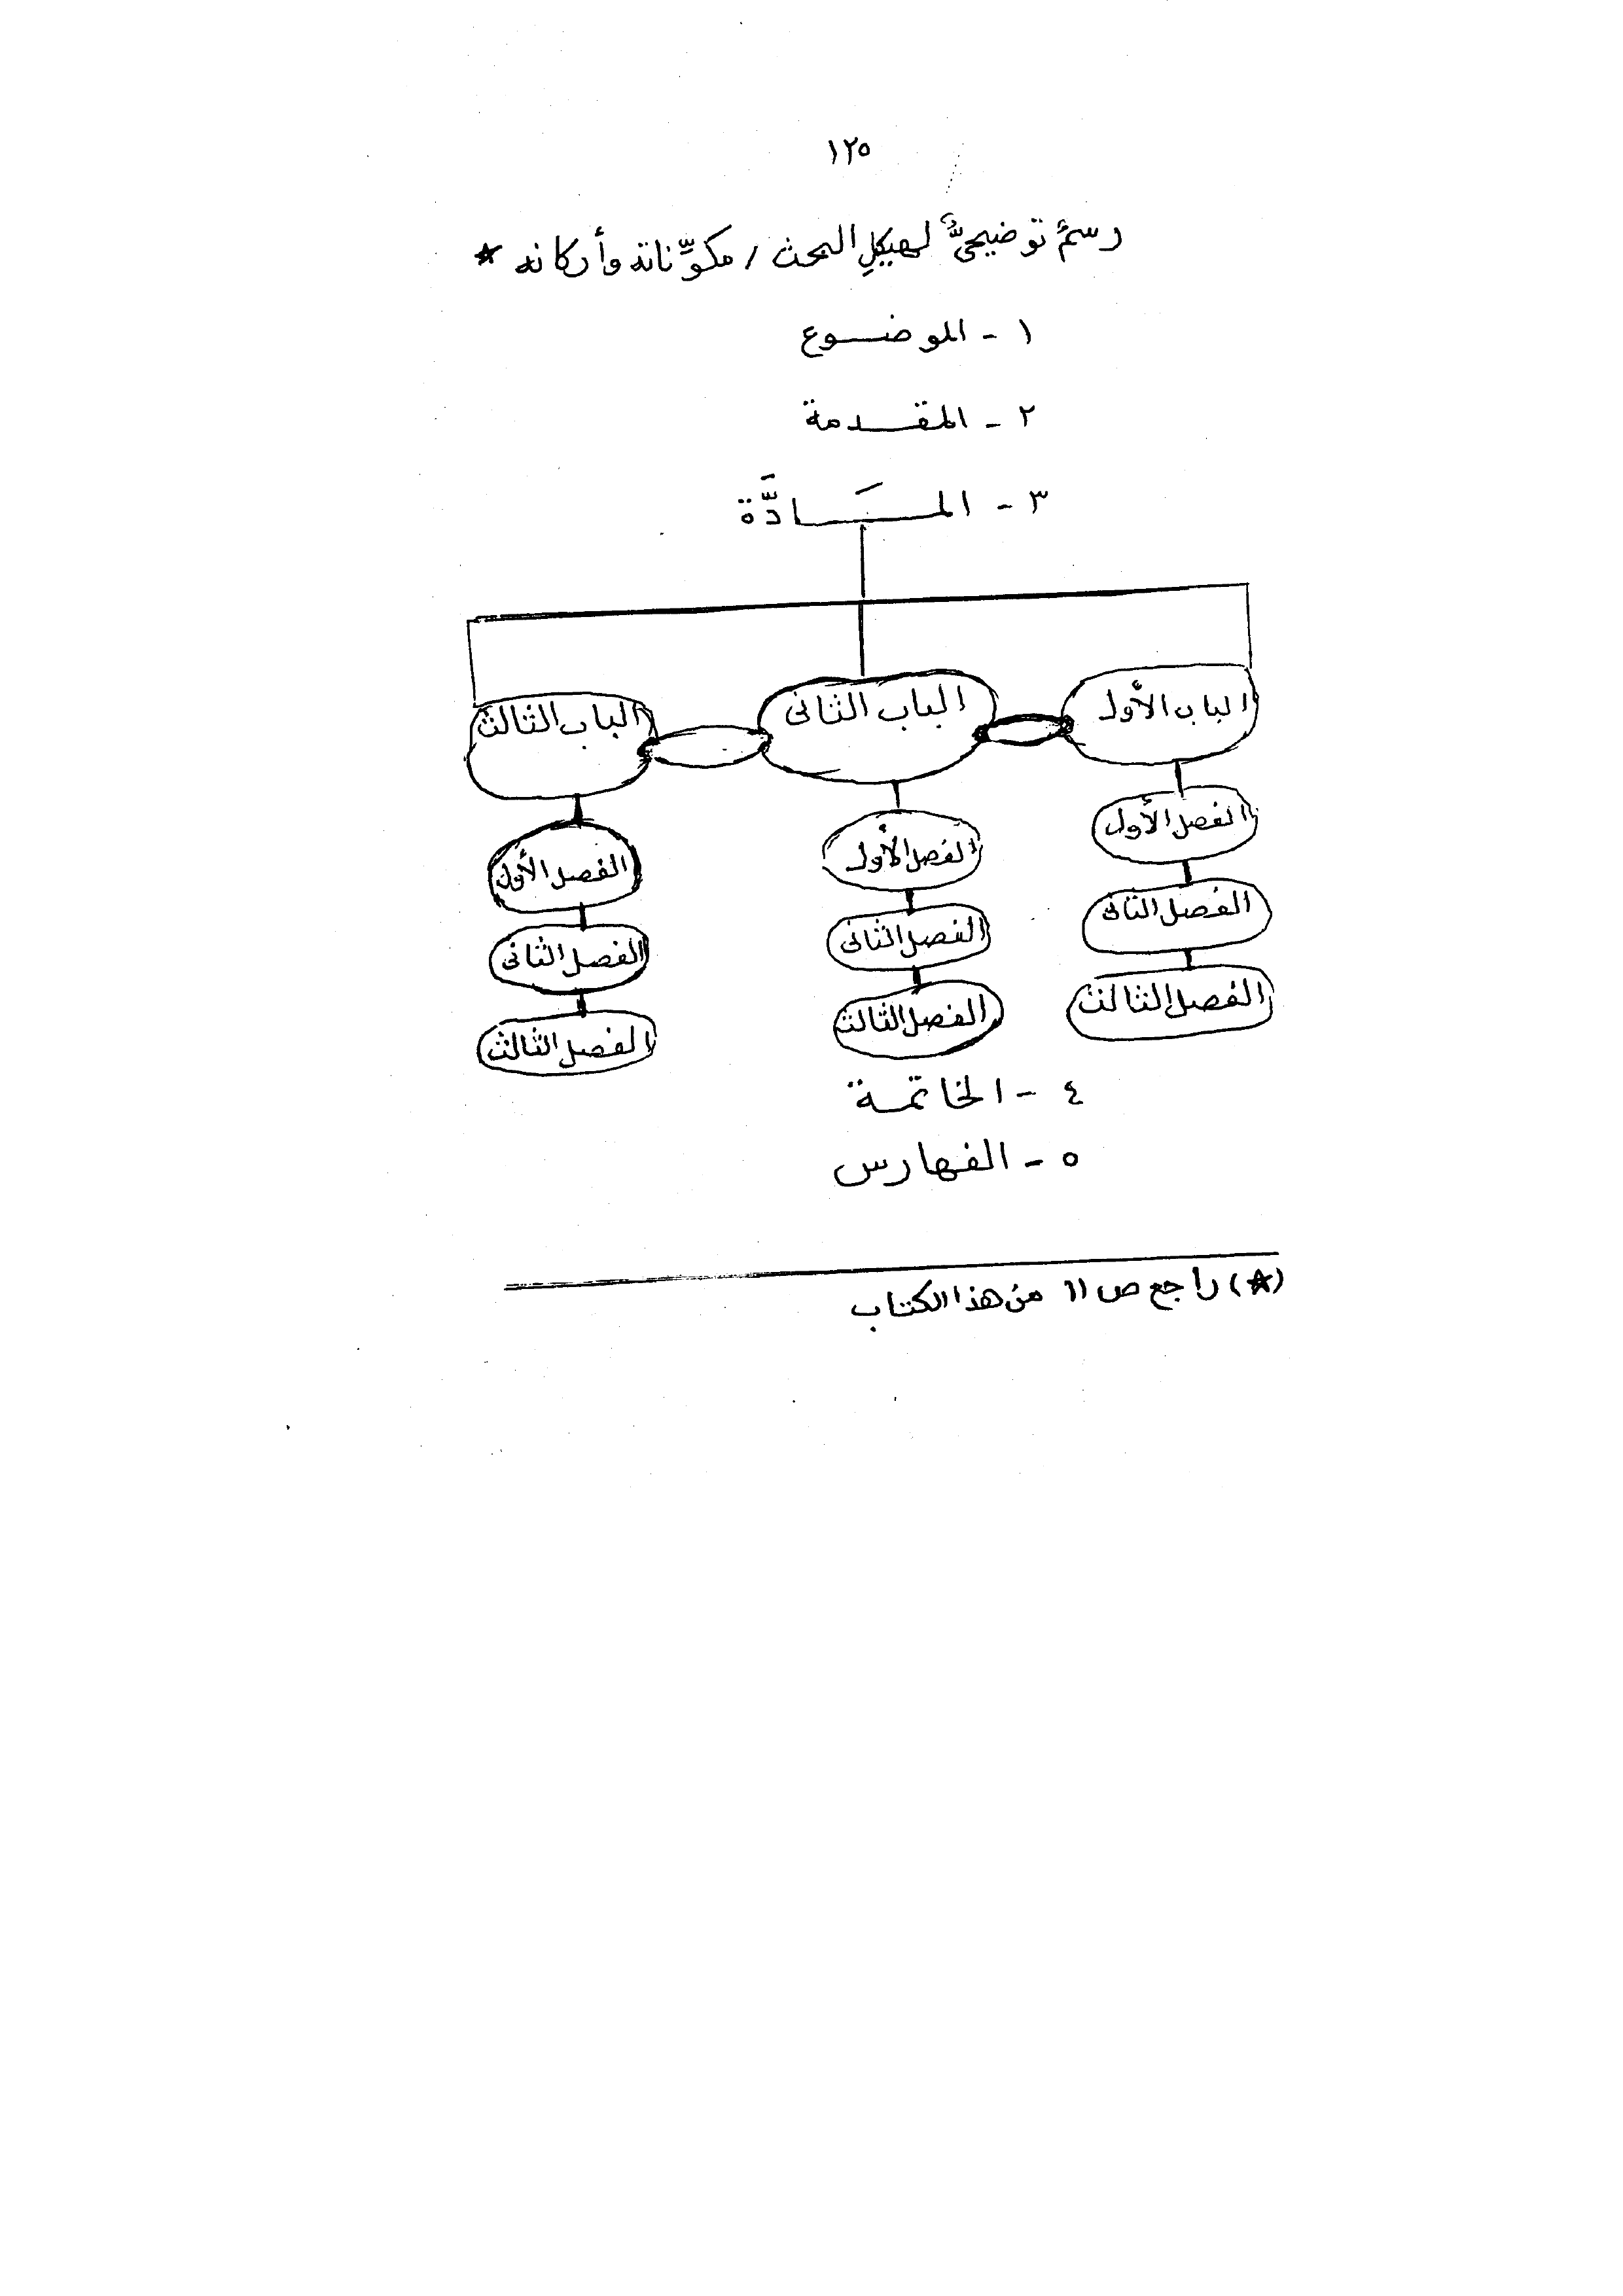 ١٢٥
رسمٌ توضيحيٌّ لهيكلِ البحث / مكوِّناته وأركانه *
١ - الموضوع
٢ - المقدمة
٣ - المَادَّة
الباب الأول الباب الثانى الباب الثالث
الفصل الأول الفصل الأول الفصل الأول
الفصل الثانى الفصل الثانى الفصل الثانى
الفصل الثالث الفصل الثالث الفصل الثالث
٤ - الخاتمة
٥ - الفهارس
(*) راجع ص ١١ من هذا الكتاب